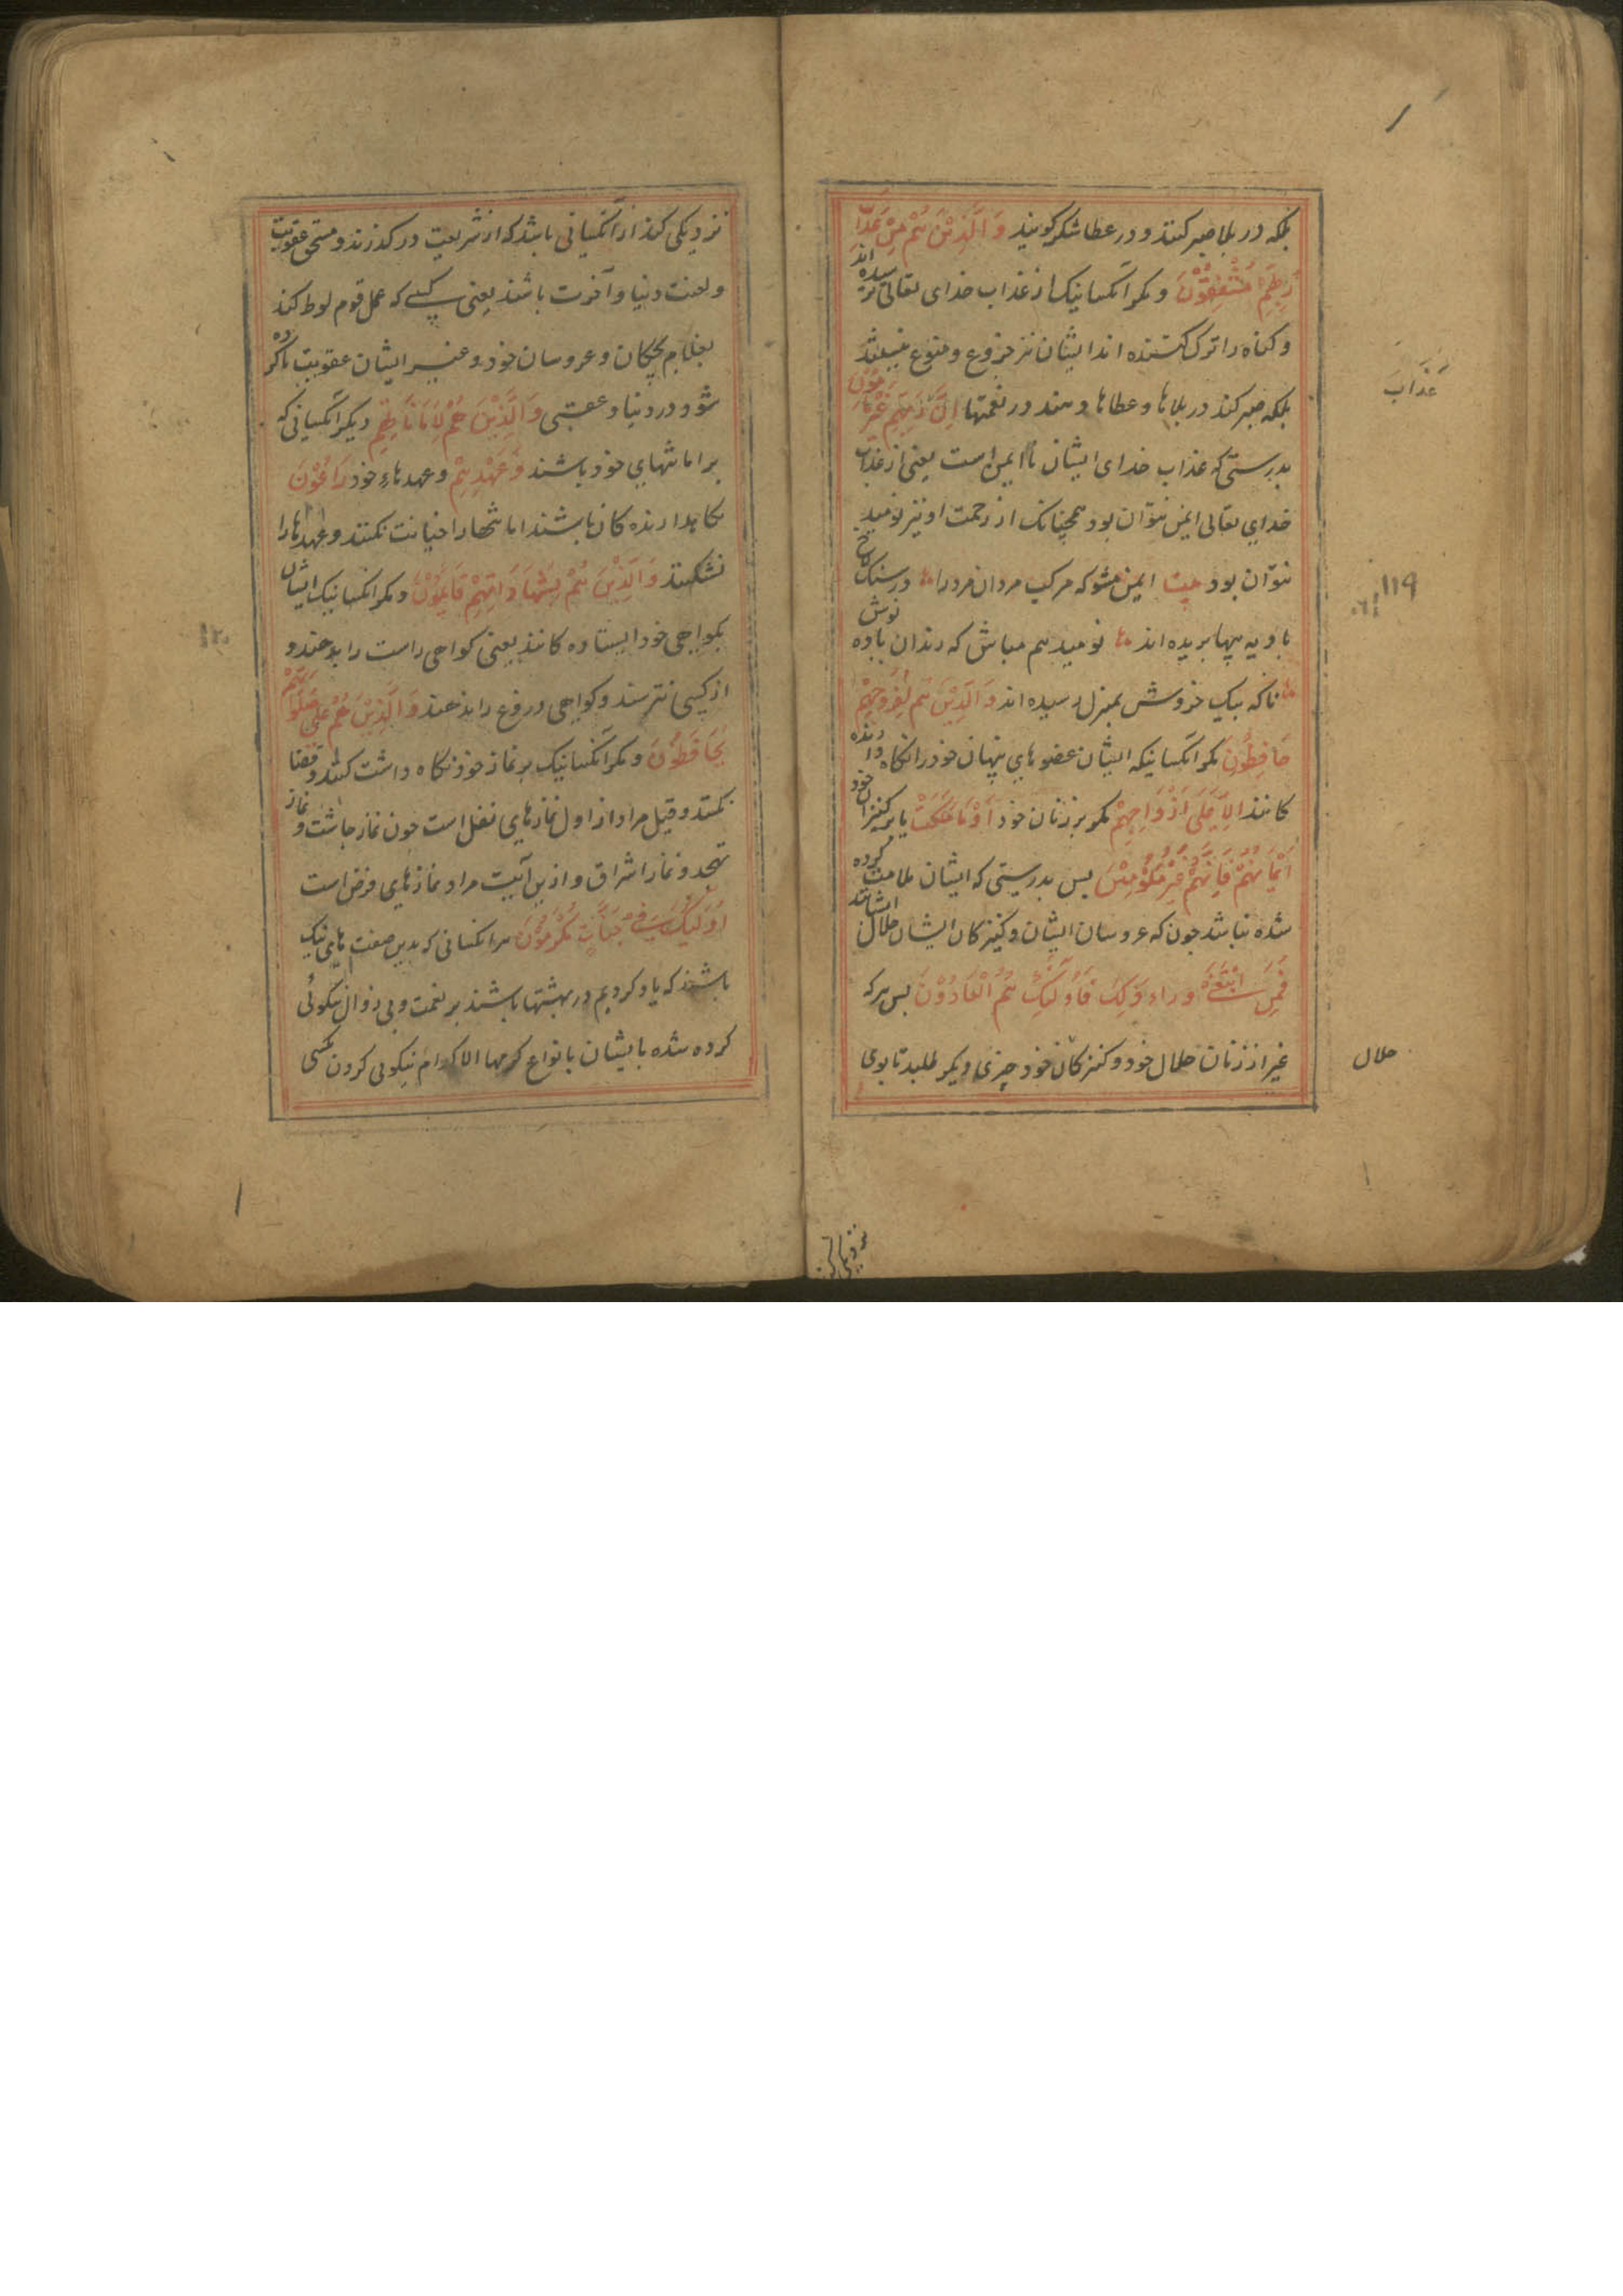 بلکه در بلا صبر کنند و در عطا شکر گویند وَالَّذِیْنَ هُمْ مِنْ عَذَابِ
رَبِّهِمْ مُشْفِقُوْنَ و مکر آنکسانیک از عذاب خدای تعالی ترسیده اند
و کناه را ترک کننده اند ایشان نیز جزوع و منوع نیستند
بلکه صبر کنند در بلاها و عطاها دهند در نعمتها اِنَّ عَذَابَ رَبِّهِمْ غَیْرُ مَأْمُوْنٍ
بدرستی که عذاب خدای ایشان نا ایمن است یعنی از عذاب
خدای تعالی ایمن نتوان بود همچنانک از رحمت او نیز نومید
نتوان بود بیت ایمن مشو که مرکب مردان مرد را در سنکلاخ
بادیه پیها بریده اند نومید هم مباش که رندان باده نوش
ناکه بیک خروش بمنزل رسیده اند وَالَّذِیْنَ هُم لِفُرُوْجِهِمْ
حَافِظُوْنَ مکر آنکسانیکه ایشان عضوهای پنهان خود را نکاه دارنده
کانند اِلَّا عَلَی اَزْوَاجِهِمْ مکر بر زنان خود اَوْ مَا مَلَکَتْ یا بر کنیزان خود
اَیْمَانُهُمْ فَاِنَّهُمْ غَیْرُ مَلُوْمِیْنَ پس بدرستی که ایشان ملامت کرده
شده نباشند جون که عروسان ایشان و کنیزکان ایشان حلال ایشانند
فَمَنِ ابْتَغٰی وَرَاءَ ذٰلِکَ فَاُولٰئِکَ هُمُ الْعَادُوْنَ پس هر که
غیر از زنان حلال خود و کنیزکان خود چیزی دیکر طلبد تا بوی
عذاب
۱۱۹
حلال
نزدیکی کند از آنکسانی باشد که از شریعت درکذرند و مستحق عقوبت
و لعنت دنیا و آخرت باشند یعنی کسی که عمل قوم لوط کند
بغلام بچکان و عروسان خود و غیر ایشان عقوبت کرده
شود در دنیا و عقبی وَالَّذِیْنَ هُمْ لِاَمَانَاتِهِمْ دیکر آنکسانی که
بر امانتهای خود باشند وَعَهْدِهِمْ و عهدهاء خود رَاعُوْنَ
نکاهدارنده کان باشند امانتها را خیانت نکنند و عهدها را
نشکنند وَالَّذِیْنَ هُمْ بِشَهَادَاتِهِمْ قَائِمُوْنَ و مکر آنکسانیک ایشان
بکواهی خود ایستاده کانند یعنی کواهی راست را بدهند و
از کسی نترسند و کواهی دروغ را ندهند وَالَّذِیْنَ هُمْ عَلٰی صَلَوَاتِهِمْ
یُحَافِظُوْنَ و مکر آنکسانیک بر نماز خود نکاه داشت کنند و قضا
نکنند و قیل مراد از اول نمازهای نفل است جون نماز جاشت و نماز
تهجد و نماز اشراق و از این آیت مراد نمازهای فرض است
اُولٰئِکَ فِی جَنَّاتٍ مُکْرَمُوْنَ مر آنکسانی که بدین صفت های نیک
باشند که یاد کردیم در بهشتها باشند بر نعمت و بی زوال نیکوئی
کرده شده بایشان بانواع کرمها الاکرام نیکوئی کردن بکسی
۱۲۰